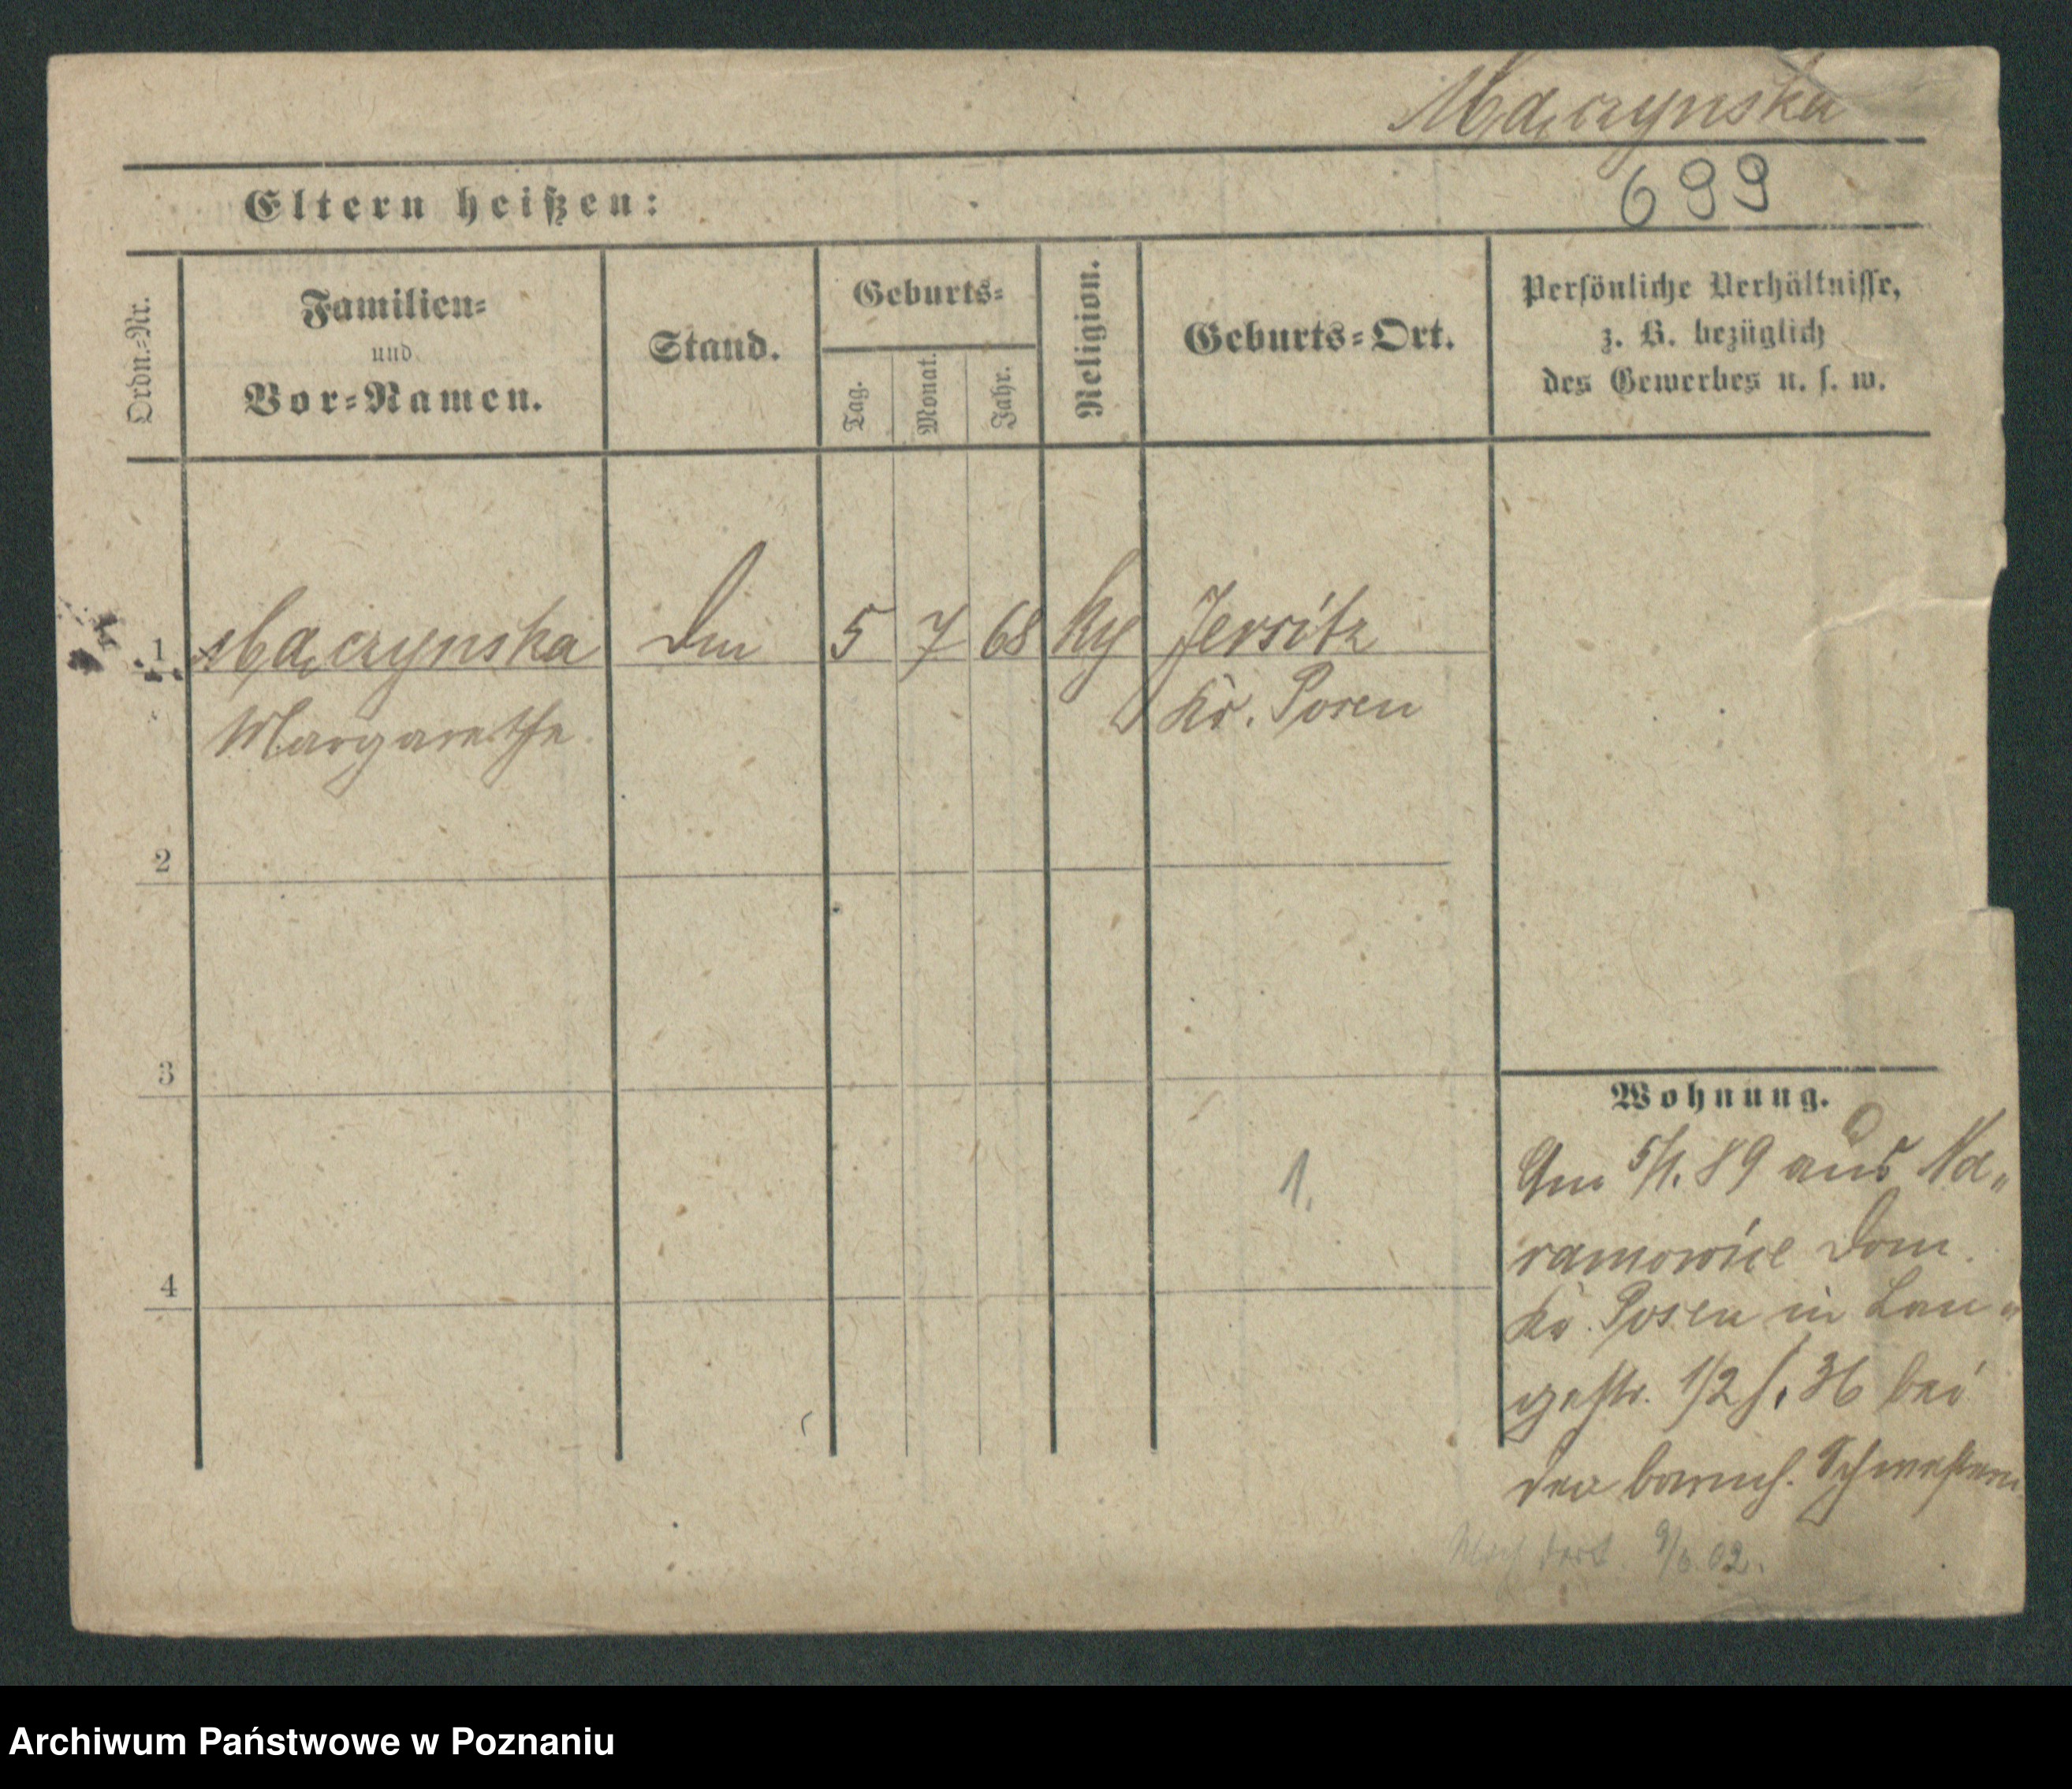 Mączynska
Eltern heißen:
699
Ordn.=Nr.
Familien=
und
Vor=Namen.
Stand.
Geburts=
Tag.
Monat.
Jahr.
Religion.
Geburts=Ort.
Persönliche Verhältnisse,
z. B. bezüglich
des Gewerbes u. s. w.
1 Mączynska 5 7 68 Jersitz
Margarethe Kr. Posen
2
3
Wohnung.
1.
Am 5/1. 89 aus Na„
ramowice Dom.
4
Kr. Posen in Lan„
gestr. 1/2 36 bei
den barmh. Schwestern
Noch dort. 9/6.02.
Archiwum Państwowe w Poznaniu